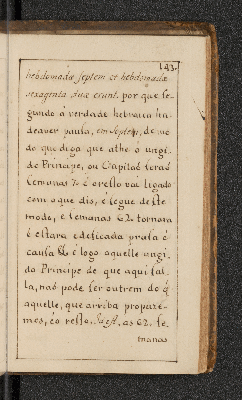 193.
hebdomadæ septem et hebdomadæ
sexaginta duæ erunt. por que se-
gundo à verdade hebraica ha-
deaver pausa, em Septem, de mo
do que diga que athe ò ungi-
do Principe, ou Capitaõ seraõ
semanas 7. è o resto vai ligado
com o que dis, è segue deste
modo, è semanas 62. tornara
è estara edeficada prasa è
causa è logo aquelle ungi-
do Principe de que aqui fal-
la, naõ pode ser outrem do q̃
aquelle, que arriba propuze-
mos, èo resto, as 62. se-
manas